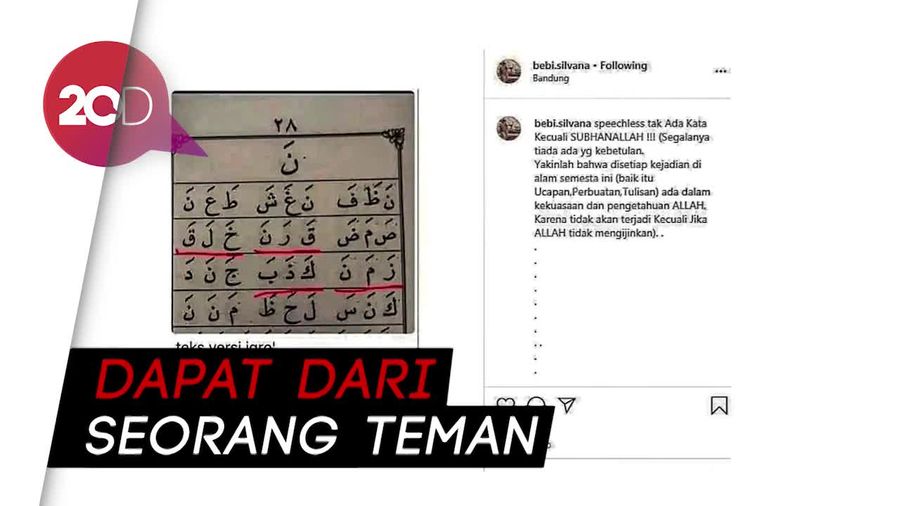 20D
٢٨
نَ
نَظَفَ نَغَشَ طَعَنَ
صَمَضَ قَرَنَ خَلَقَ
زَمَنَ كَذَبَ جَنَدَ
كَنَسَ لَحَظَ مَنَنَ
teks versi iqro'
bebi.silvana • Following
Bandung
bebi.silvana speechless tak Ada Kata
Kecuali SUBHANALLAH !!! (Segalanya
tiada ada yg kebetulan.
Yakinlah bahwa disetiap kejadian di
alam semesta ini (baik itu
Ucapan,Perbuatan,Tulisan) ada dalam
kekuasaan dan pengetahuan ALLAH,
Karena tidak akan terjadi Kecuali Jika
ALLAH tidak mengijinkan). .
.
.
.
.
.
.
.
. .
.
.
DAPAT DARI
SEORANG TEMAN